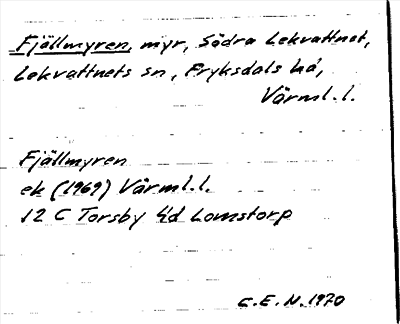 Fjällmyren, myr, Södra Lekvattnet,
Lekvattnets sn, Fryksdals hd,
Värml. l.
Fjällmyren
ek (1969) Värml. l.
12 C Torsby 4d Lomstorp
C. E. N. 1970